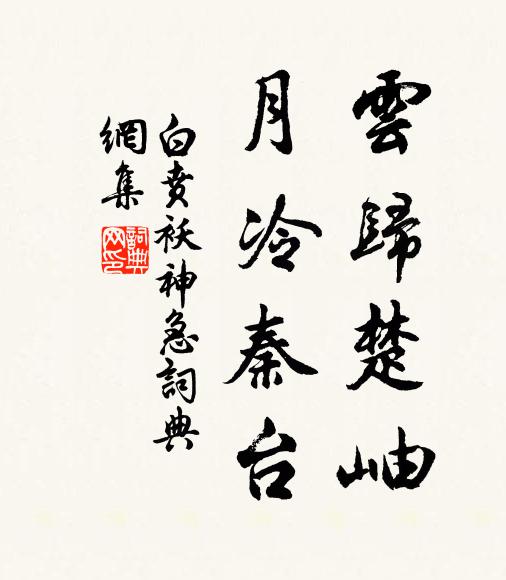 雲歸楚岫
月冷秦台
白賁祆神急詞典
網集
詞典
网印